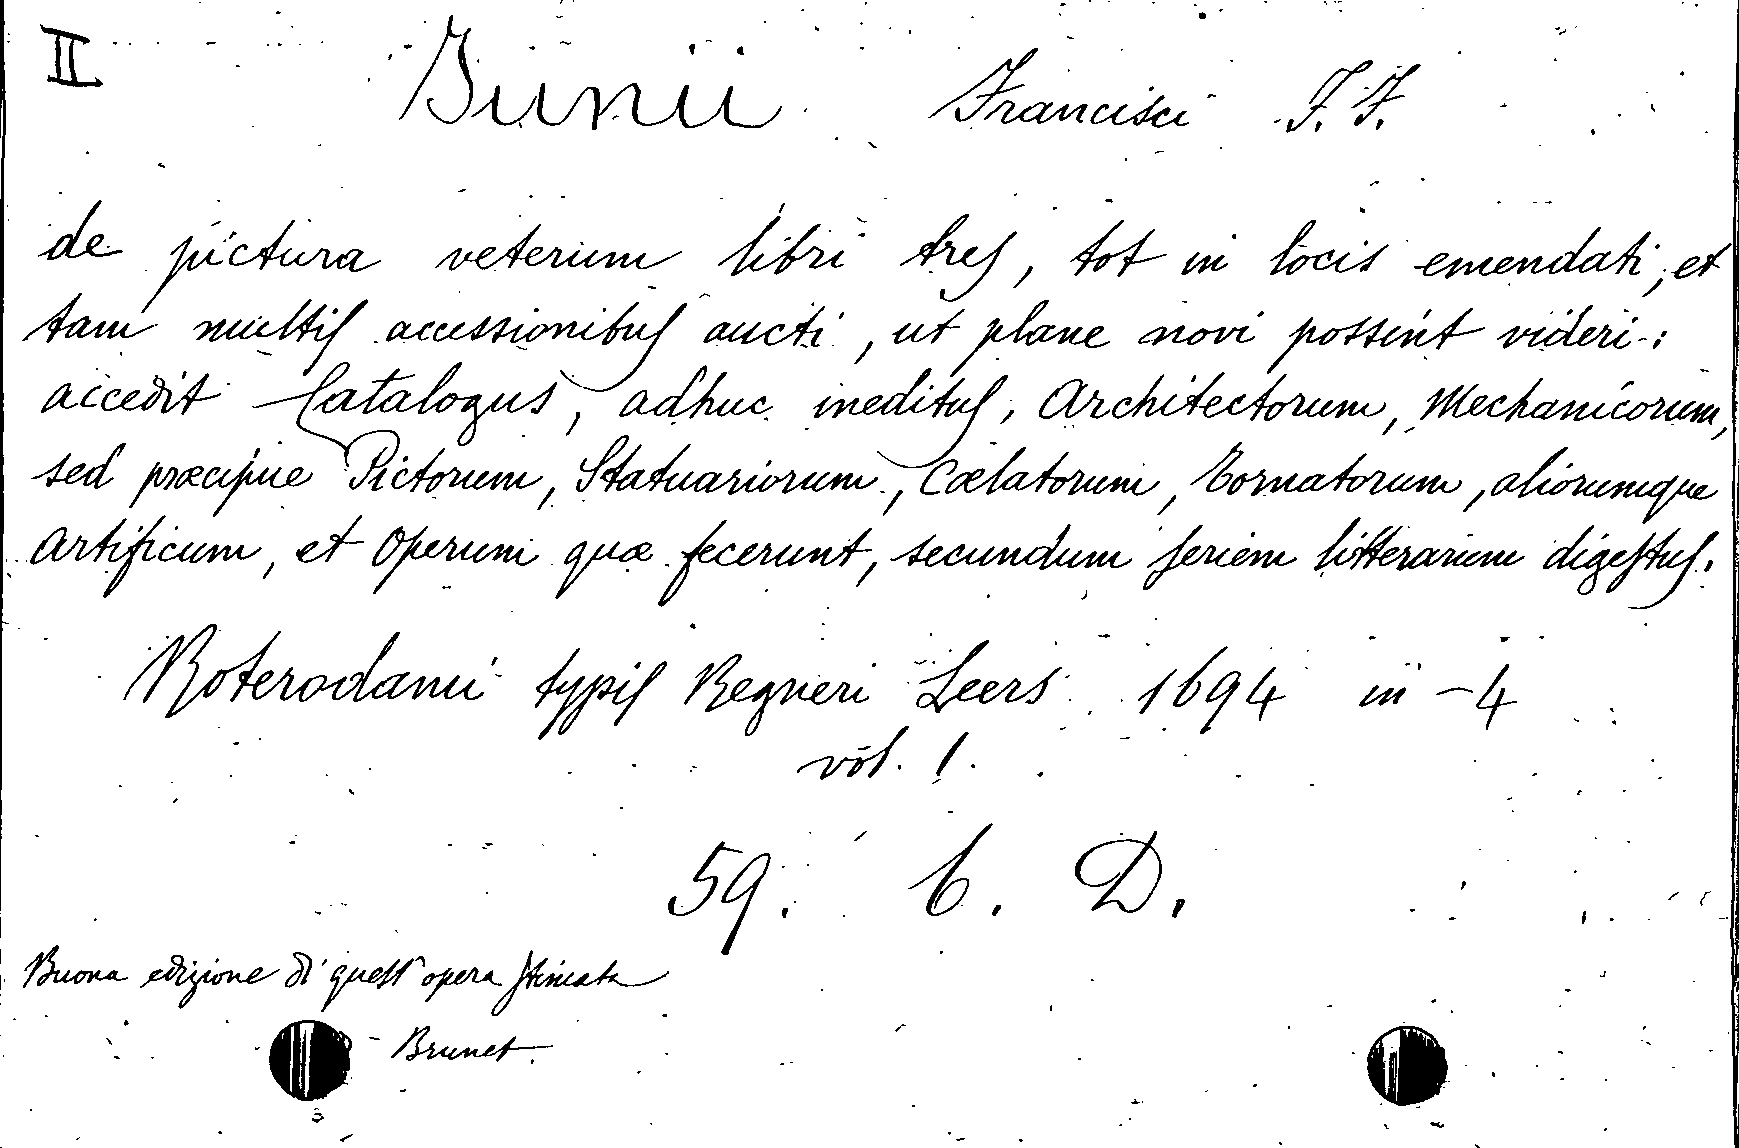 II Junii Francisci F. F.
de pictura veterum libri tres, tot in locis emendati, et
tam multis accessionibus aucti, ut plane novi possint videri:
accedit Catalogus, adhuc ineditus, Architectorum, Mechanicorum,
sed præcipue Pictorum, Statuariorum, Cælatorum, Tornatorum, aliorumque
Artificum, et Operum quæ fecerunt, secundum seriem litterarum digestus.
Roterodami typis Regneri Leers 1694 in-4
vol. 1.
59. 6. D.
Buona edizione di quest'opera stimata
- Brunet.